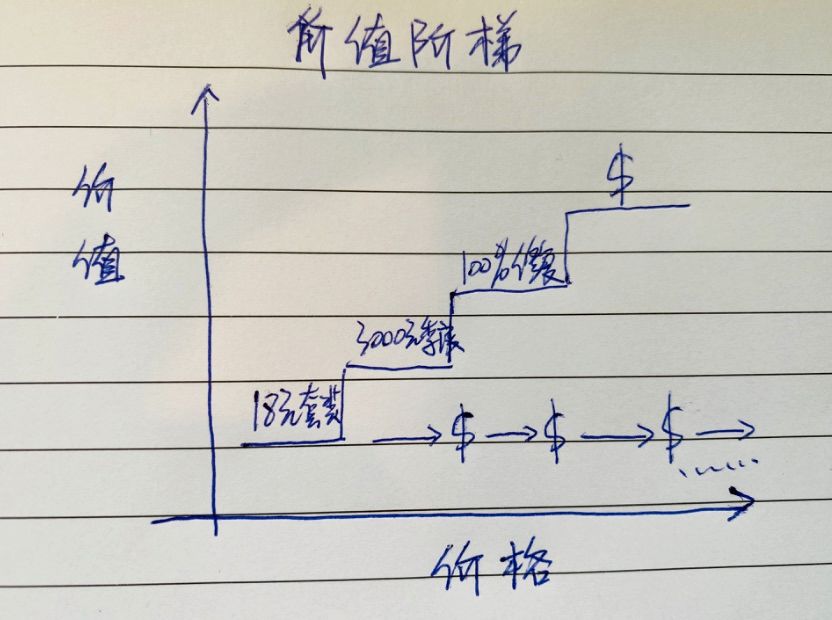 价值阶梯
价
值
$
100%修复
3000元季度
18元套装
$ $ $ ......
价格